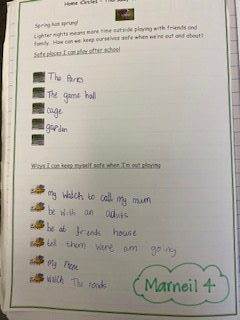 Home Circles - Thursday
Spring has sprung!
Lighter nights means more time outside playing with friends and
family. How can we keep ourselves safe when we're out and about?
Safe places I can play after school
The Parks
The game hall
cage
garden
Ways I can keep myself safe when I'm out playing
my watch to call my mum
be with an adults
be at friends house
tell them were am going
my
watch The roads
Marneil 4